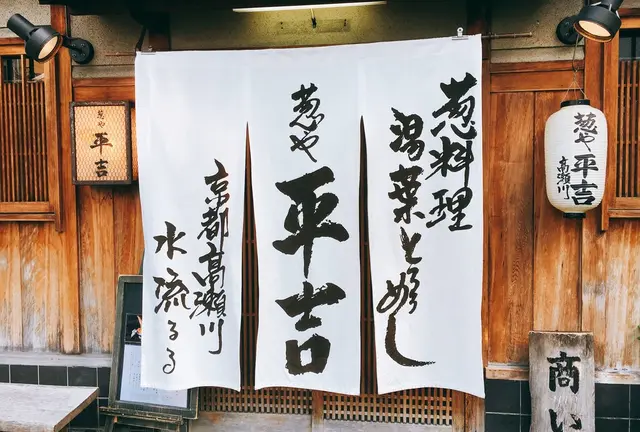 葱料理
湯葉とろろめし
葱や
平吉
京都高瀬川
水流るる
葱や
平吉
葱や
平吉
高瀬川
商い